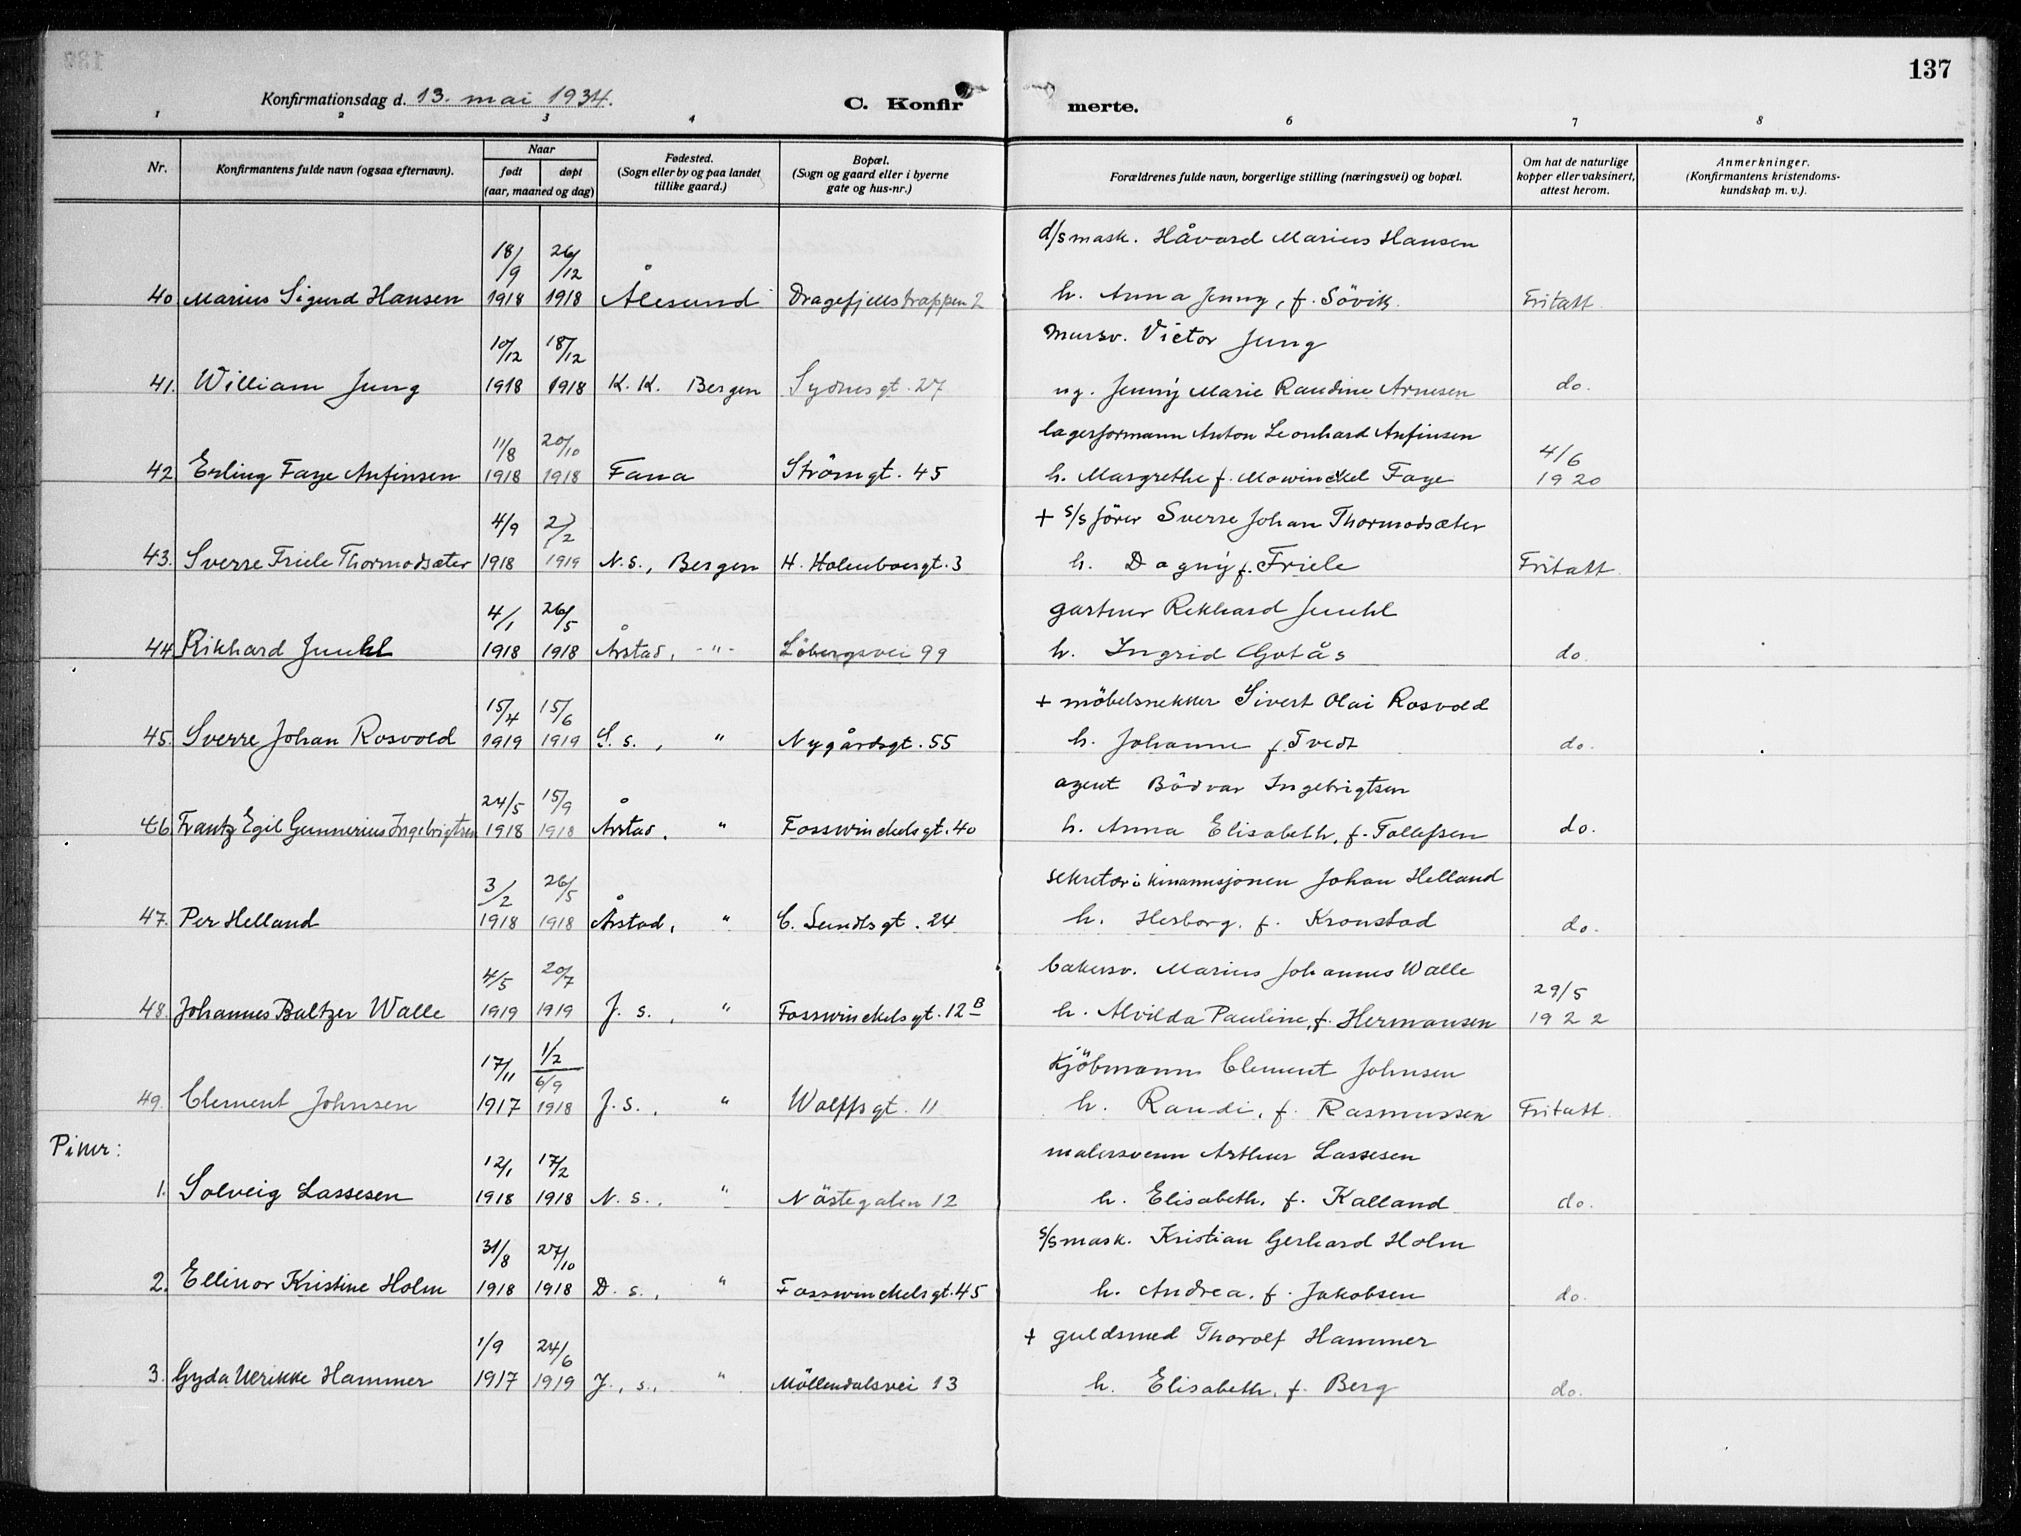 137
Konfirmationsdag d. 13. mai 1934.
C. Konfir merte.
1 2 3 4 6 7 8
Nr.
Konfirmantens fulde navn (ogsaa efternavn).
Naar
født døpt
(aar, maaned og dag)
Fødested.
(Sogn eller by og paa landet
tillike gaard.)
Bopæl.
(Sogn og gaard eller i byerne
gate og hus-nr.)
Forældrenes fulde navn, borgerlige stilling (næringsvei) og bopæl.
Om hat de naturlige
kopper eller vaksinert,
attest herom.
Anmerkninger.
(Konfirmantens kristendoms-
kundskap m. v.).
18/9 26/12 d/s mask. Håvard Marius Hansen
40 Marius Sigurd Hansen 1918 1918 Ålesund Dragefjellstrappen 2 h. Anna Jenny, f. Sövik. Fritatt.
10/12 18/12 mursv. Victor Jung
41. William Jung 1918 1918 K. K. Bergen Sydnesgt. 27 ug. Jenny Marie Raudine Arnesen do.
11/8 20/10 lagerformann Anton Leonhard Anfinsen 4/6
42 Erling Faye Anfinsen 1918 1918 Fana Strömgt. 45 h. Margrethe f. Mowinckel Faye 1920
4/9 2/2 + s/s förer Sverre Johan Thormodsæter
43. Sverre Friele Thormodsæter 1918 1919 N. s., Bergen H. Holenboesgt. 3 h. Dagny f. Friele Fritatt.
4/1 26/5 gartner Rikhard Juuhl
44. Rikhard Juuhl 1918 1918 Årstad, -"- Löbergsvei 99 h. Ingrid Gotås do.
15/4 15/6 + möbelsnekker Sivert Olai Rosvold
45. Sverre Johan Rosvold 1919 1919 S. s., " Nygårdsgt. 55 h. Johanne f. Tvedt do.
24/5 15/9 agent Bödvar Ingebrigtsen
46. Frantz Egil Gunnerius Ingebrigtsen 1918 1918 Årstad, " Fosswinckelsgt. 40 h. Anna Elisabeth, f. Tollefsen do.
3/2 26/5 sekretær i kinannsjonen Johan Helland
47. Per Helland 1918 1918 Årstad, " C. Sundtsgt. 24 h. Herborg, f. Kronstad do.
4/5 20/7 bakersv. Marius Johannes Walle 29/5
48. Johannes Baltzer Walle 1919 1919 J. s., " Fosswinckelsgt. 12 B h. Alvilda Pauline, f. Hermansen 1922
17/11 1/2 6/9 Kjöbmann Clement Johnsen
49. Clement Johnsen 1917 1918 J. s., " Wolffsgt. 11 h. Randi, f. Rasmussen Fritatt.
Piker:
12/1 17/2 malersvenn Arthur Lassesen
1. Solveig Lassesen 1918 1918 N. s., " Nöstegaten 12 h. Elisabeth, f. Kalland do.
31/8 27/10 s/s mask. Kristian Gerhard Holm
2. Ellinor Kristine Holm 1918 1918 D. s., " Fosswinckelsgt. 45 h. Andrea, f. Jakobsen do.
1/9 24/6 + guldsmed Thorolf Hammer
3. Gyda Ulrikke Hammer 1917 1919 J., s., " Möllendalsvei 13 h. Elisabeth, f. Berg do.